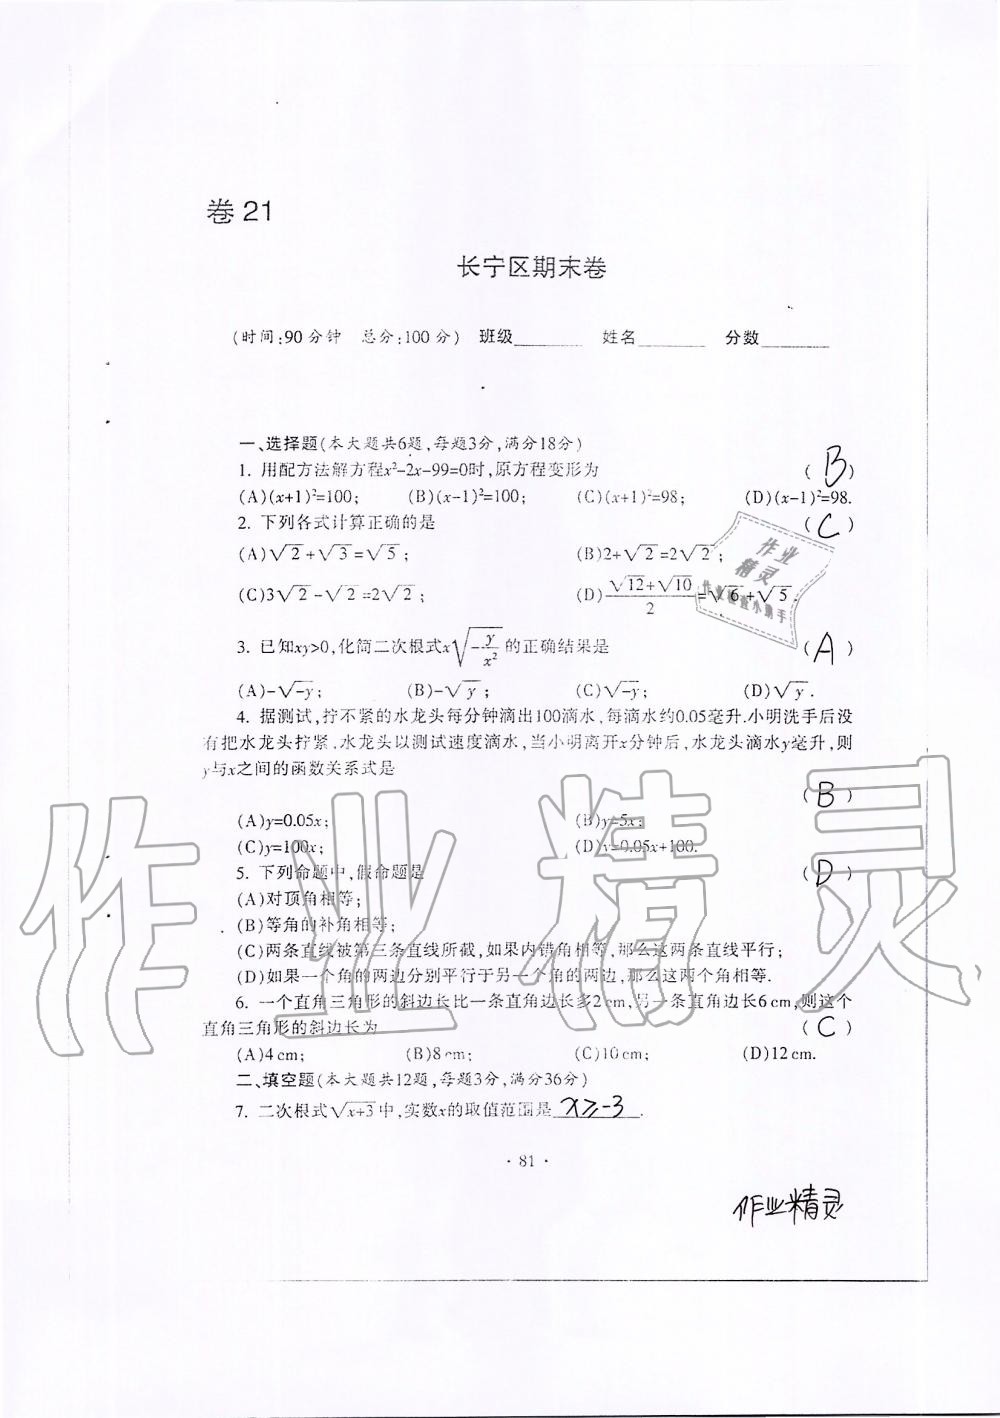 卷 21
长宁区期末卷
(时间:90分钟 总分:100分) 班级______ 姓名______ 分数______
一、选择题(本大题共6题,每题3分,满分18分)
1. 用配方法解方程x²-2x-99=0时,原方程变形为 ( B )
(A)(x+1)²=100; (B)(x-1)²=100; (C)(x+1)²=98; (D)(x-1)²=98.
2. 下列各式计算正确的是 ( C )
(A)√2+√3=√5; (B)2+√2=2√2;
(C)3√2-√2=2√2; (D)(√12+√10)/2=√6+√5.
3. 已知xy>0,化简二次根式x√(-y/x²)的正确结果是 ( A )
(A)-√-y; (B)-√y; (C)√-y; (D)√y.
4. 据测试,拧不紧的水龙头每分钟滴出100滴水,每滴水约0.05毫升.小明洗手后没
有把水龙头拧紧.水龙头以测试速度滴水,当小明离开x分钟后,水龙头滴水y毫升,则
y与x之间的函数关系式是
( B )
(A)y=0.05x; (B)y=5x;
(C)y=100x; (D)y=0.05x+100.
5. 下列命题中,假命题是 ( D )
(A)对顶角相等;
(B)等角的补角相等;
(C)两条直线被第三条直线所截,如果内错角相等,那么这两条直线平行;
(D)如果一个角的两边分别平行于另一个角的两边,那么这两个角相等.
6. 一个直角三角形的斜边长比一条直角边长多2cm,另一条直角边长6cm,则这个
直角三角形的斜边长为 ( C )
(A)4cm; (B)8cm; (C)10cm; (D)12cm.
二、填空题(本大题共12题,每题3分,满分36分)
7. 二次根式√(x+3)中,实数x的取值范围是 x≥-3 .
· 81 ·
作业精灵
作业精灵
作业
精灵
作业检查小助手